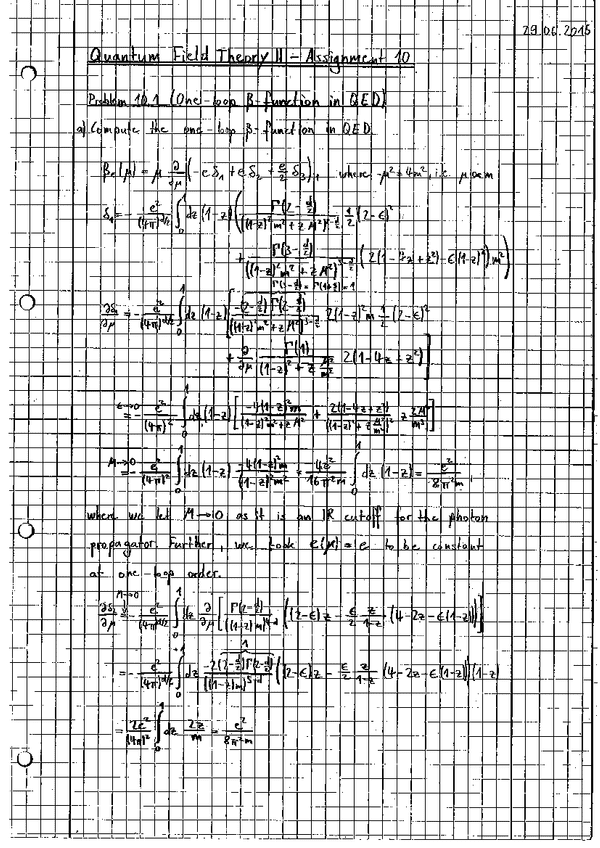 29.06.2015
Quantum Field Theory II – Assignment 10
Problem 10.1 (One-loop β-function in QED)
a) Compute the one-loop β-function in QED.
β_e(μ) = μ ∂/∂μ (-e δ_1 + e δ_2 + e/2 δ_3), where -μ² = 4m², i.e. μ ∝ m
δ_1 = - e²/(4π)^{d/2} ∫_0^1 dz (1-z) ( Γ(2-d/2)/((1-z)²m² + z M²)^{2-d/2} 1/2 (2-ε)²
+ Γ(3-d/2)/((1-z)²m² + z M²)^{3-d/2} ( 2(1-4z+z²) - ε(1-z)²) m² )
Γ(3-d/2) = Γ(1+ε/2) = 1
∂δ_1/∂μ = - e²/(4π)^{d/2} ∫_0^1 dz (1-z) [ -(2-d/2) Γ(2-d/2)/((1-z)²m² + z M²)^{3-d/2} 2(1-z)² m 1/2 (2-ε)²
+ ∂/∂μ Γ(1)/((1-z)² + z M²/m²) 2(1-4z+z²) ]
ε→0 = - e²/(4π)² ∫_0^1 dz (1-z) [ -4(1-z)²m/((1-z)²m² + z M²) + 2(1-4z+z²)/((1-z)² + z M²/m²)² z 2M²/m³ ]
M→0 = - e²/(4π)² ∫_0^1 dz (1-z) -4(1-z)²m/((1-z)²m²) = 4e²/(16π²m) ∫_0^1 dz (1-z) = e²/(8π²m),
where we let M→0 as it is an IR cutoff for the photon
propagator. Further, we took e(μ) = e to be constant
at one-loop order.
M→0
∂δ_2/∂μ = - e²/(4π)^{d/2} ∫_0^1 dz ∂/∂μ [ Γ(2-d/2)/((1-z)m)^{4-d} ((2-ε)z - ε/2 z/(1-z) (4-2z-ε(1-z))) ]
1
= - e²/(4π)^{d/2} ∫_0^1 dz -2(2-d/2)Γ(2-d/2)/((1-z)m)^{5-d} ((2-ε)z - ε/2 z/(1-z) (4-2z-ε(1-z))) (1-z)
= 2e²/(4π)² ∫_0^1 dz 2z/m = e²/(8π²m)